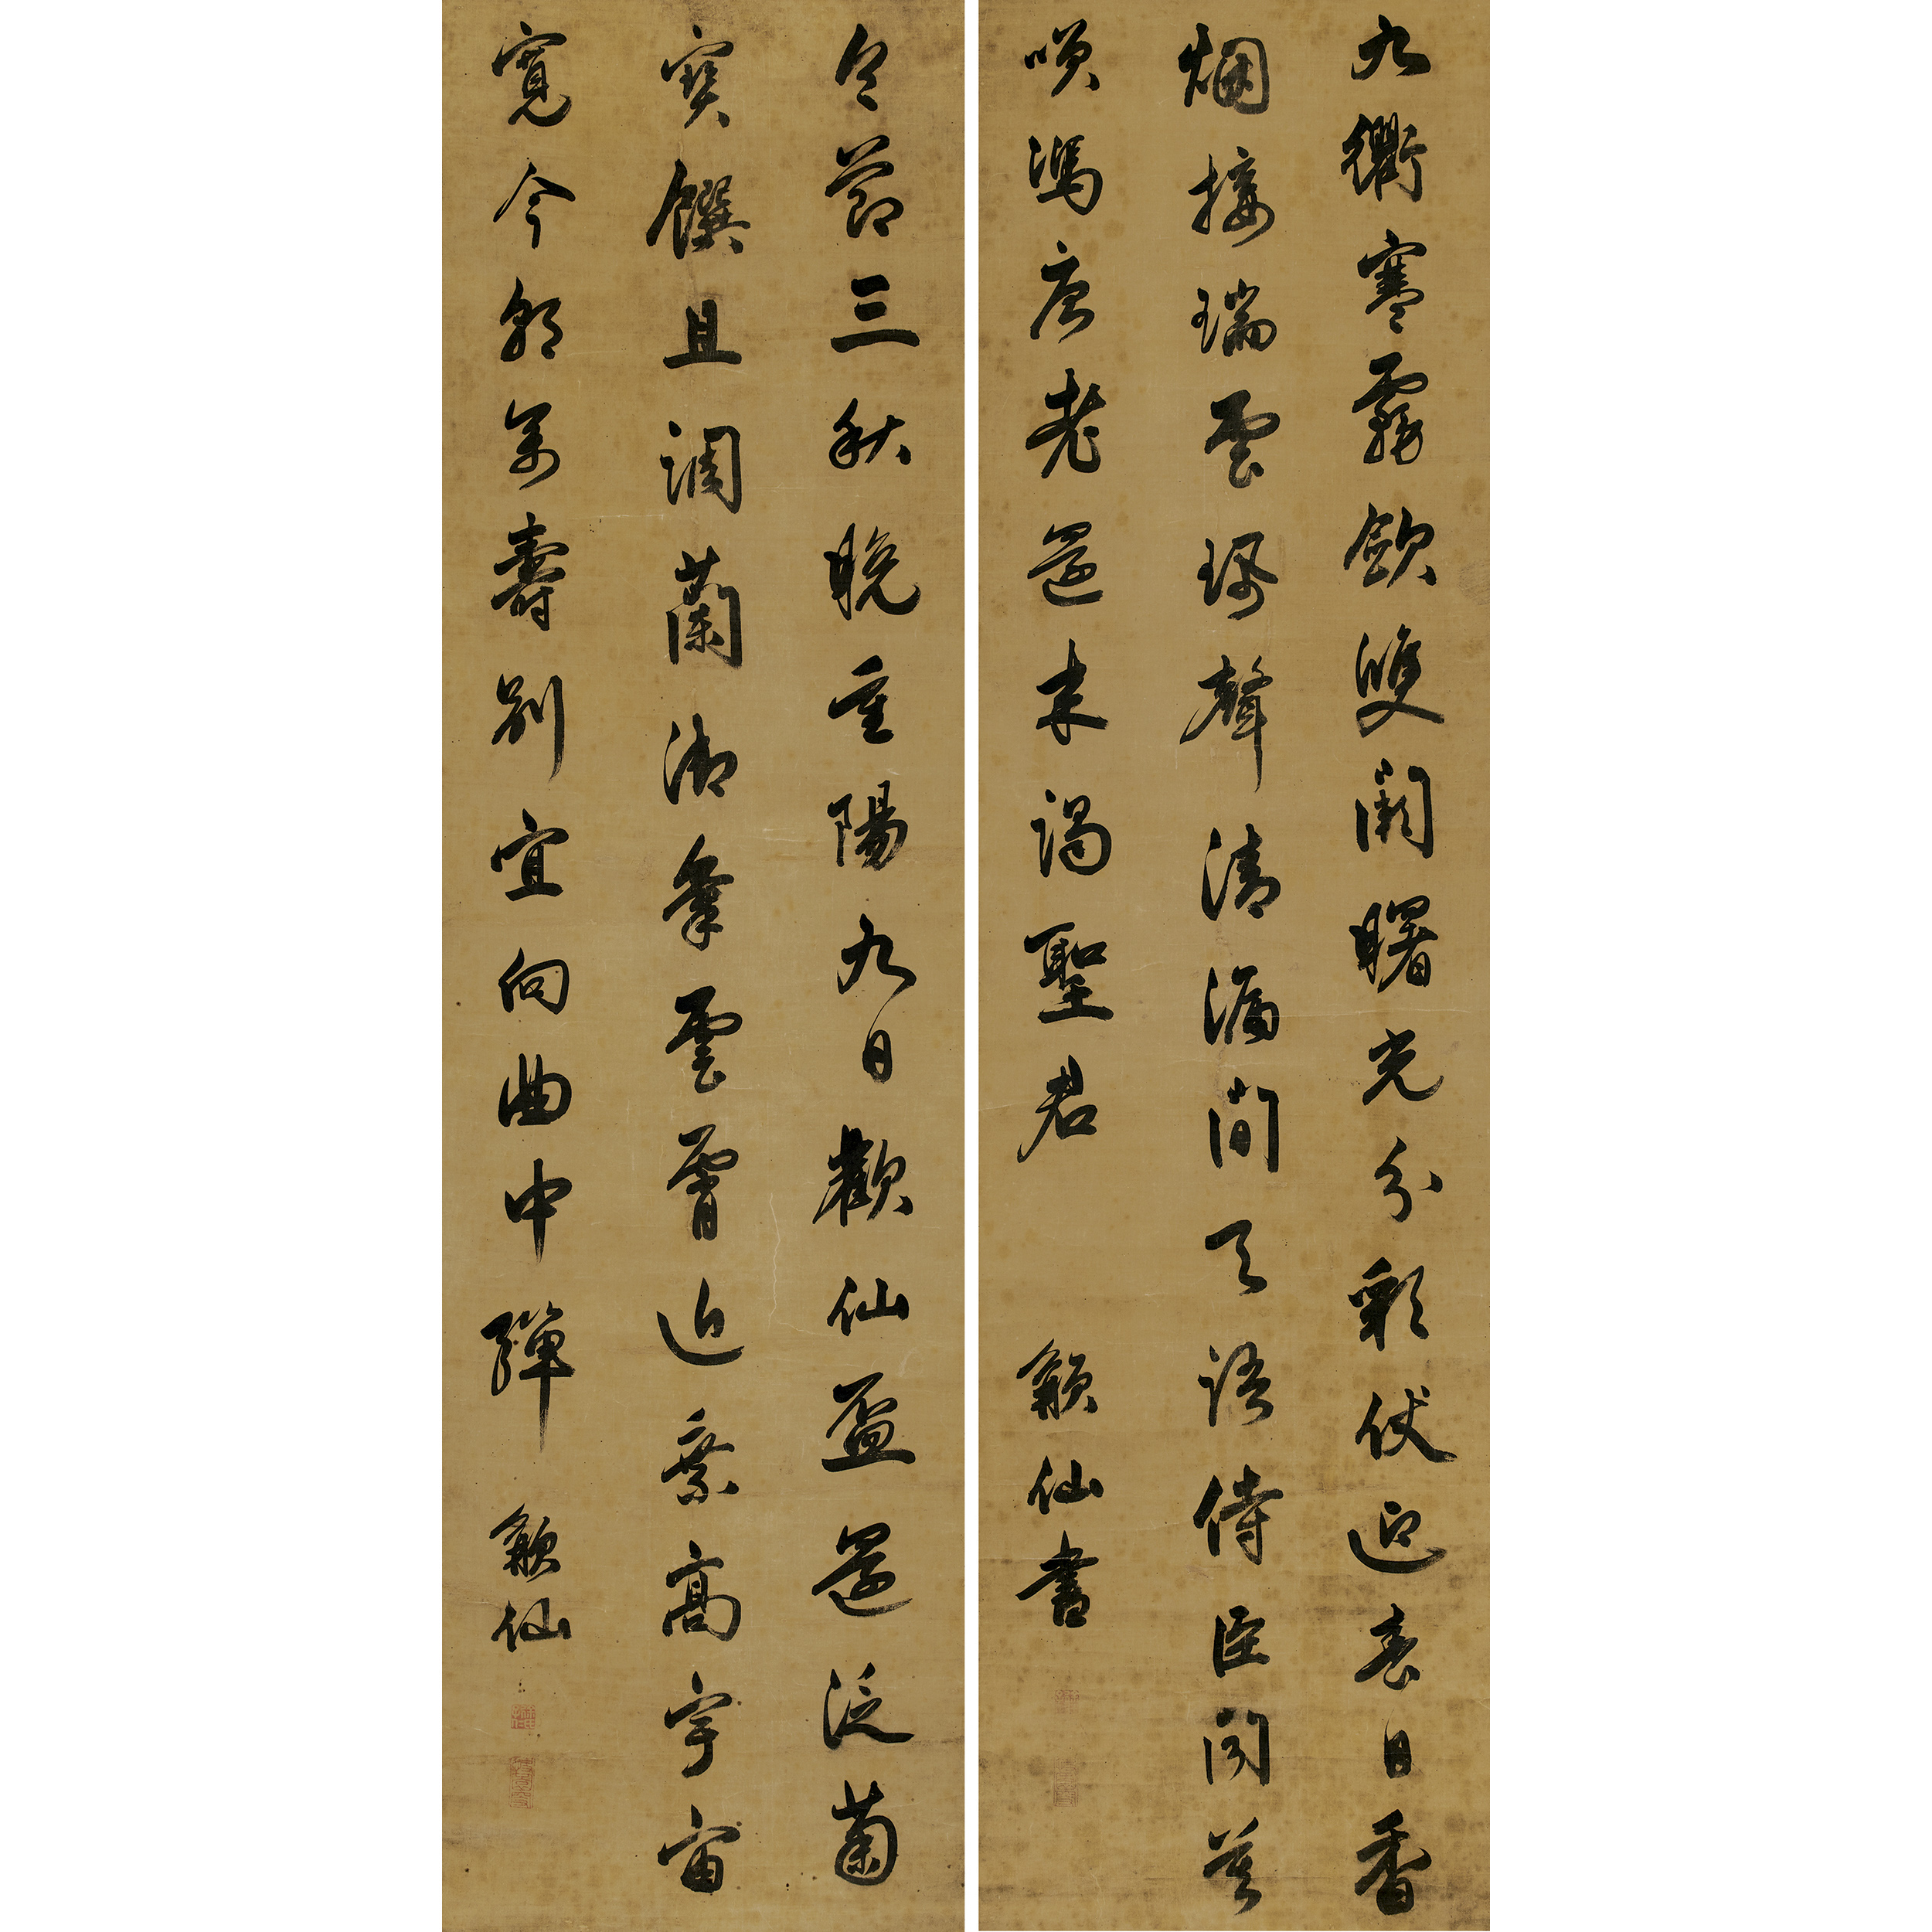 九衢寒霧斂雙闕曙光分彩仗迎春日香
烟接瑞雲珮聲清漏間天語侍臣聞莫
嘆馮唐老還来謁聖君
仙書
令節三秋晚重陽九日歡仙盃還泛菊
寶饌且調蘭御氣雲霄近乘高宇宙
寬今朝萬壽別宜向曲中彈
仙